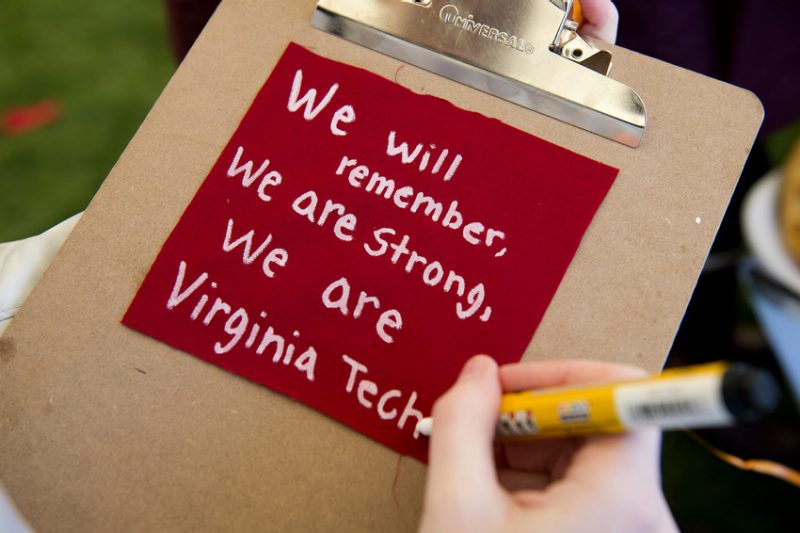 UNIVERSAL®
We will
remember,
We are Strong,
We are
Virginia Tech